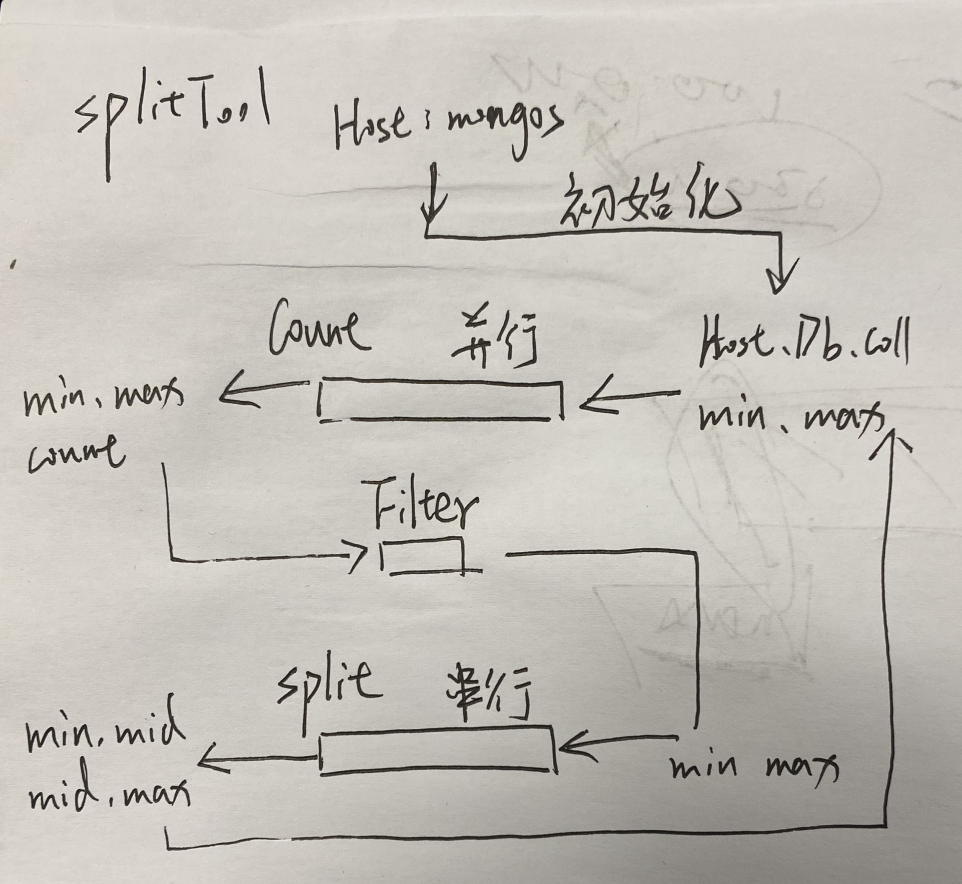 splitTool
Host: mongos
初始化
Count 并行
Host.Db.Coll
min、max
min、max
count
Filter
split 串行
min, mid
mid, max
min max